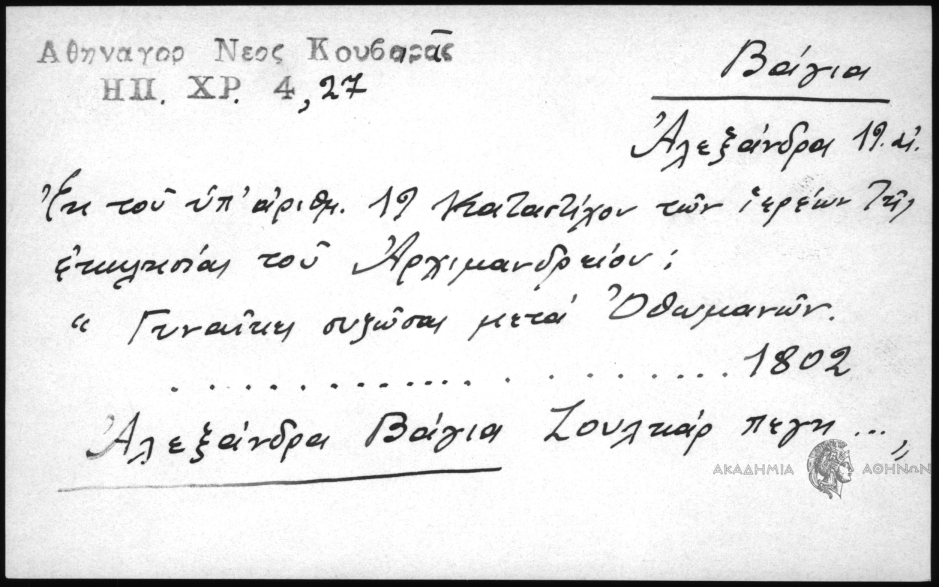 Αθηναγορ Νεος Κουβαρᾶς
ΗΠ. ΧΡ. 4, 27
Βάγια
Ἀλεξάνδρα 19. αἰ.
Ἐκ τοῦ ὑπ' ἀριθμ. 19 Καταστίχου τῶν ἱερέων τῆς
ἐκκλησίας τοῦ Ἀρχιμανδρείου;
“ Γυναῖκες συζῶσαι μετά Ὀθωμανῶν.
. . . . . . . . . . . . . . . . . . . . . 1802
Ἀλεξάνδρα Βάγια Ζουλκάρ πεγη ...„
ΑΚΑΔΗΜΙΑ ΑΘΗΝΩΝ